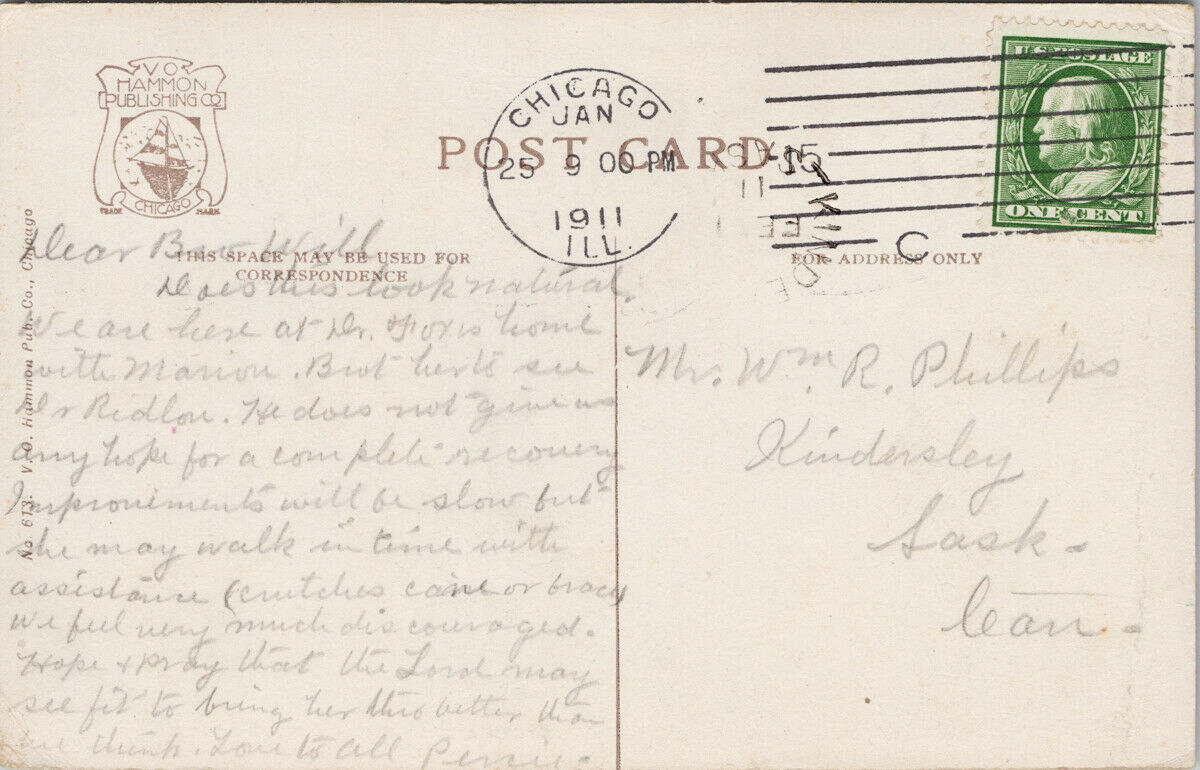 V.O.
HAMMON
PUBLISHING CO
TRADE CHICAGO MARK
POST CARD
CHICAGO
JAN
25 9 00 PM
1911
ILL.
C
U.S. POSTAGE
ONE CENT
THIS SPACE MAY BE USED FOR
CORRESPONDENCE
FOR ADDRESS ONLY
No. 613. V.O. Hammon Pub. Co., Chicago
Dear Bro Will
Does this look natural.
We are here at Dr. Fox's home
with Marion. Brot her to see
Dr Ridlon. He does not give us
any hope for a complete recovery
Improvements will be slow but
she may walk in time with
assistance (crutches cane or brace)
We feel very much discouraged.
Hope & pray that the Lord may
see fit to bring her thro better than
we think. Love to all
Mr. Wm. R. Phillips
Kindersley
Sask.
Can.